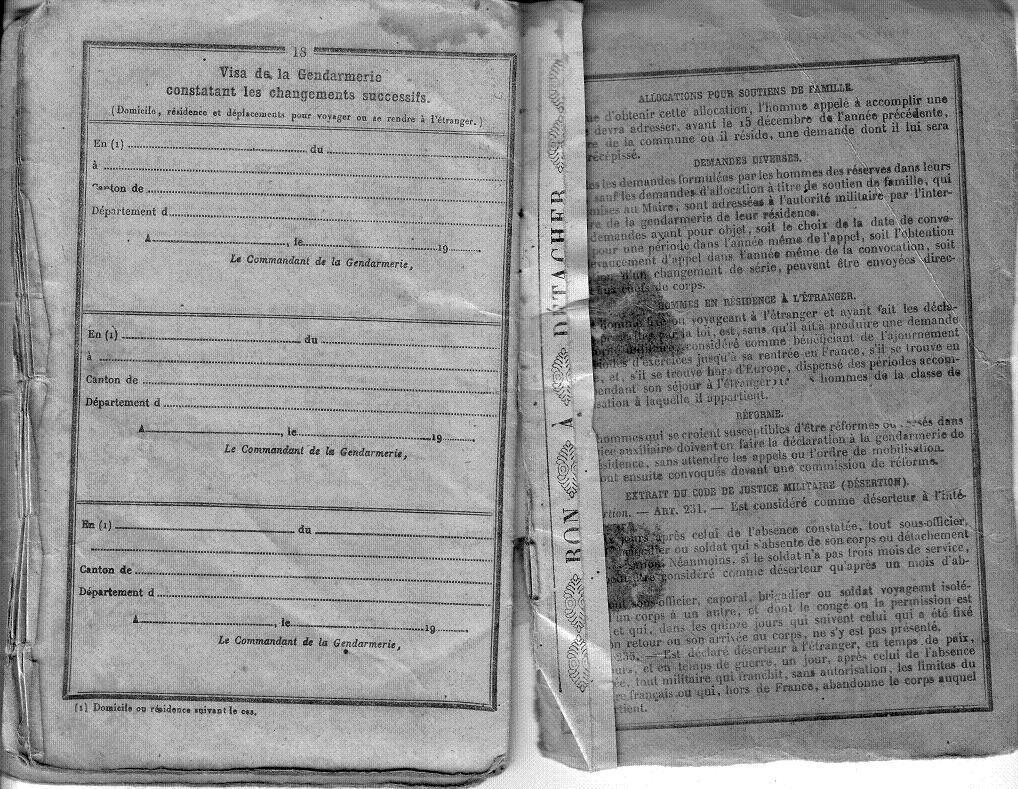 18
Visa de la Gendarmerie
constatant les changements successifs.
(Domicile, résidence et déplacements pour voyager ou se rendre à l'étranger.)
En (1) du
à
Canton de
Département d
A , le 19
Le Commandant de la Gendarmerie,
En (1) du
à
Canton de
Département d
A , le 19
Le Commandant de la Gendarmerie,
En (1) du
Canton de
Département d
A , le 19
Le Commandant de la Gendarmerie,
(1) Domicile ou résidence suivant le cas.
BON À DÉTACHER
ALLOCATIONS POUR SOUTIENS DE FAMILLE.
d'obtenir cette allocation, l'homme appelé à accomplir une
devra adresser, avant le 15 décembre de l'année précédente,
de la commune où il réside, une demande dont il lui sera
récépissé.
DEMANDES DIVERSES.
les demandes formulées par les hommes des réserves dans leurs
sauf les demandes d'allocation à titre de soutien de famille, qui
mises au Maire, sont adressées à l'autorité militaire par l'inter-
re de la gendarmerie de leur résidence.
demandes ayant pour objet, soit le choix de la date de convo-
pour une période dans l'année même de l'appel, soit l'obtention
devancement d'appel dans l'année même de la convocation, soit
d'un changement de série, peuvent être envoyées direc-
aux chefs de corps.
HOMMES EN RÉSIDENCE À L'ÉTRANGER.
homme fixé ou voyageant à l'étranger et ayant fait les décla-
par la loi, est, sans qu'il ait à produire une demande
considéré comme bénéficiant de l'ajournement
d'exercices jusqu'à sa rentrée en France, s'il se trouve en
e, et, s'il se trouve hors d'Europe, dispensé des périodes accom-
pendant son séjour à l'étranger hommes de la classe de
sation à laquelle il appartient.
RÉFORME.
hommes qui se croient susceptibles d'être réformés ou dans
ice auxiliaire doivent en faire la déclaration à la gendarmerie de
sidence, sans attendre les appels ou l'ordre de mobilisation.
ont ensuite convoqués devant une commission de réforme.
EXTRAIT DU CODE DE JUSTICE MILITAIRE (DÉSERTION).
rtion. — ART. 231. — Est considéré comme déserteur à l'inté-
jours après celui de l'absence constatée, tout sous-officier,
brigadier ou soldat qui s'absente de son corps ou détachement
Néanmoins, si le soldat n'a pas trois mois de service,
être considéré comme déserteur qu'après un mois d'ab-
sous-officier, caporal, brigadier ou soldat voyageant isolé-
un corps à un autre, et dont le congé ou la permission est
et qui, dans les quinze jours qui suivent celui qui a été fixé
on retour ou son arrivée au corps, ne s'y est pas présenté.
235. — Est déclaré déserteur à l'étranger, en temps de paix,
urs, et en temps de guerre, un jour, après celui de l'absence
ée, tout militaire qui franchit, sans autorisation, les limites du
re français ou qui, hors de France, abandonne le corps auquel
rtient.